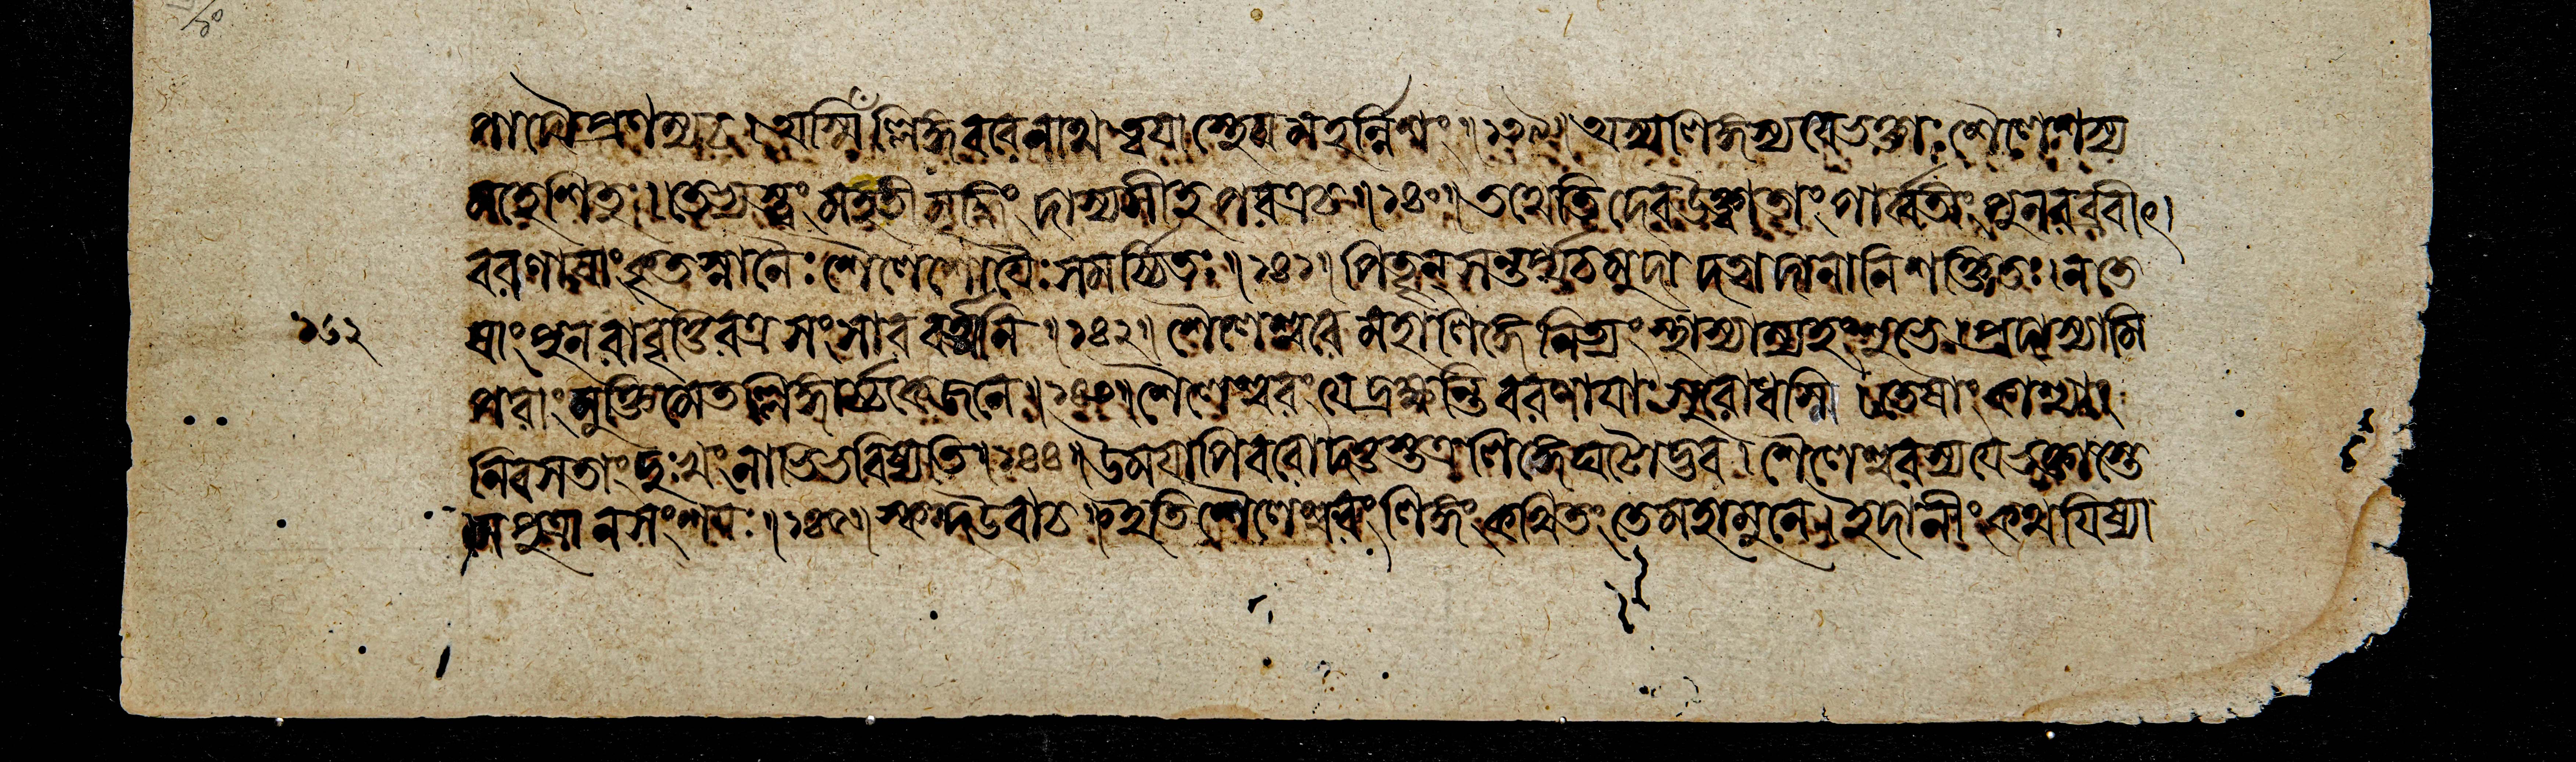 পাদযোঃপ্রণত্যচ। অস্মিঁল্লিঙ্গবরেনাথ ত্বযাস্থেযমহর্ন্নিশং॥১৩৯॥ অস্যলিঙ্গস্যযেভক্তাঃ শৈলেশস্য
মহেশিতুঃ। তেভ্যস্ত্বং মহতীমৃদ্ধিং দাস্যসীহ পরত্রচ॥১৪০॥ তথেতি দেবউক্ত্বাতাং পার্ব্বতীং পুনরব্রবীৎ।
বরণাযাং কৃতস্নানৈঃ শৈলেশোযৈঃ সমর্চ্চিতঃ॥১৪১॥ পিতৄন্ সন্তর্প্যচমুদা দত্বাদানানি শক্তিতঃ। নতে
১৬২ ষাং পুনরাবৃত্তিরত্র সংসারবর্ত্মনি॥১৪২॥ শৈলেশ্বরে মহালিঙ্গে নিত্যং স্থাস্যাম্যহংশুভে। প্রদাস্যামি
পরাং মুক্তিমেতল্লিঙ্গার্চ্চকেজনে॥১৪৩॥ শৈলেশ্বরং যে দ্রক্ষন্তি বরণাযাঃ সুরোধসি। তেষাং কাশ্যাং
নিবসতাং দুঃখং নাভিভবিষ্যতি॥১৪৪॥ উমযাপি বরোদত্তস্তত্রলিঙ্গেঘটোদ্ভব। শৈলেশ্বরস্য যেভক্তাস্তে
মপুত্রা নসংশযঃ॥১৪৫॥ স্কন্দউবাচ। ইতি শৈলেশ্বরং লিঙ্গং কথিতং তেমহামুনে। ইদানীং কথযিষ্যা